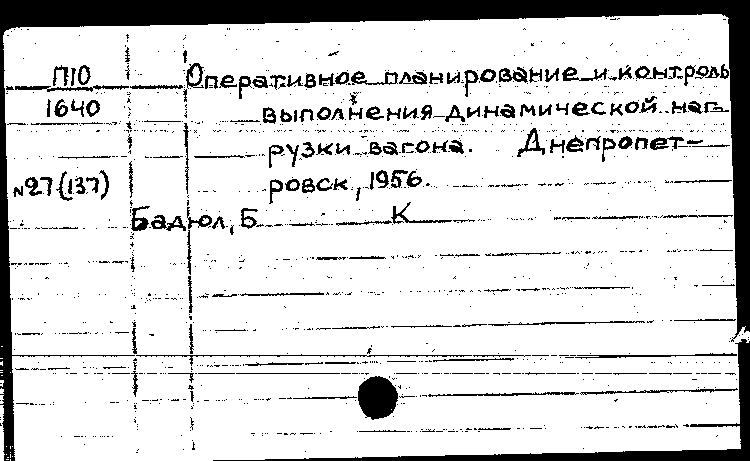 П10
1640
Оперативное планирование и контроль
выполнения динамической наг-
рузки вагона. Днепропет-
ровск, 1956.
№27(137)
Бадюл, Б К